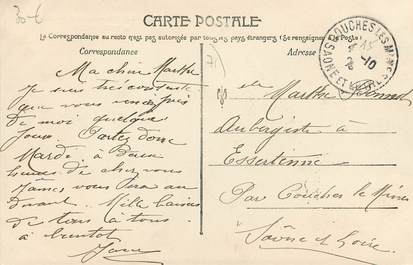 30-6
CARTE POSTALE
La Correspondance au recto n'est pas autorisée par tous les pays étrangers (Se renseigner à la Poste)
Correspondance
Adresse
COUCHES-LES-MINES
SAONE ET LOIRE
10
71
Ma chère Marthe
Je suis très contente
que vous veniez près
de moi quelque
jour. Partez donc
Mardi à deux
heures de chez vous
James vous sera au
devant. Mille baisers
de tous à tous.
à bientôt
Melle
Marthe
Aubergiste à
Essertenne
Par Couches les Mines
Saône et Loire